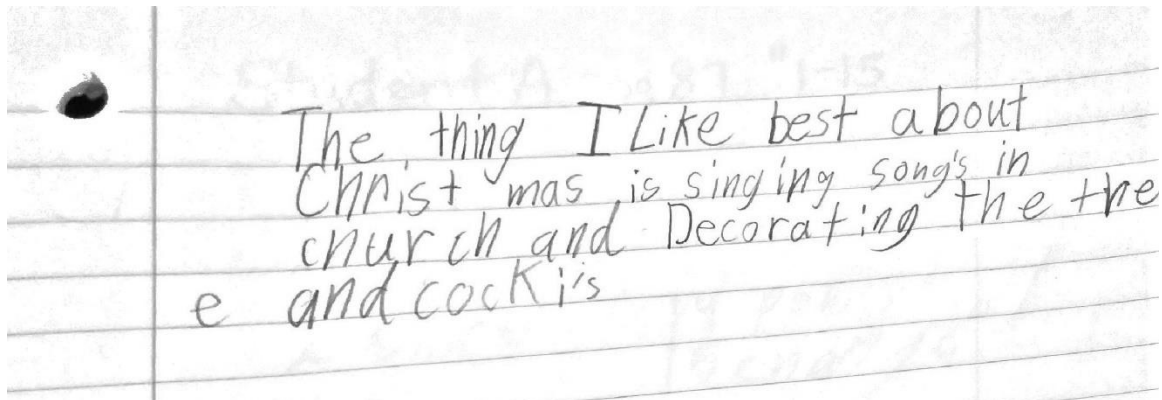 The thing I Like best about
Christ mas is singing song's in
church and Decorating the the
e and cocki's